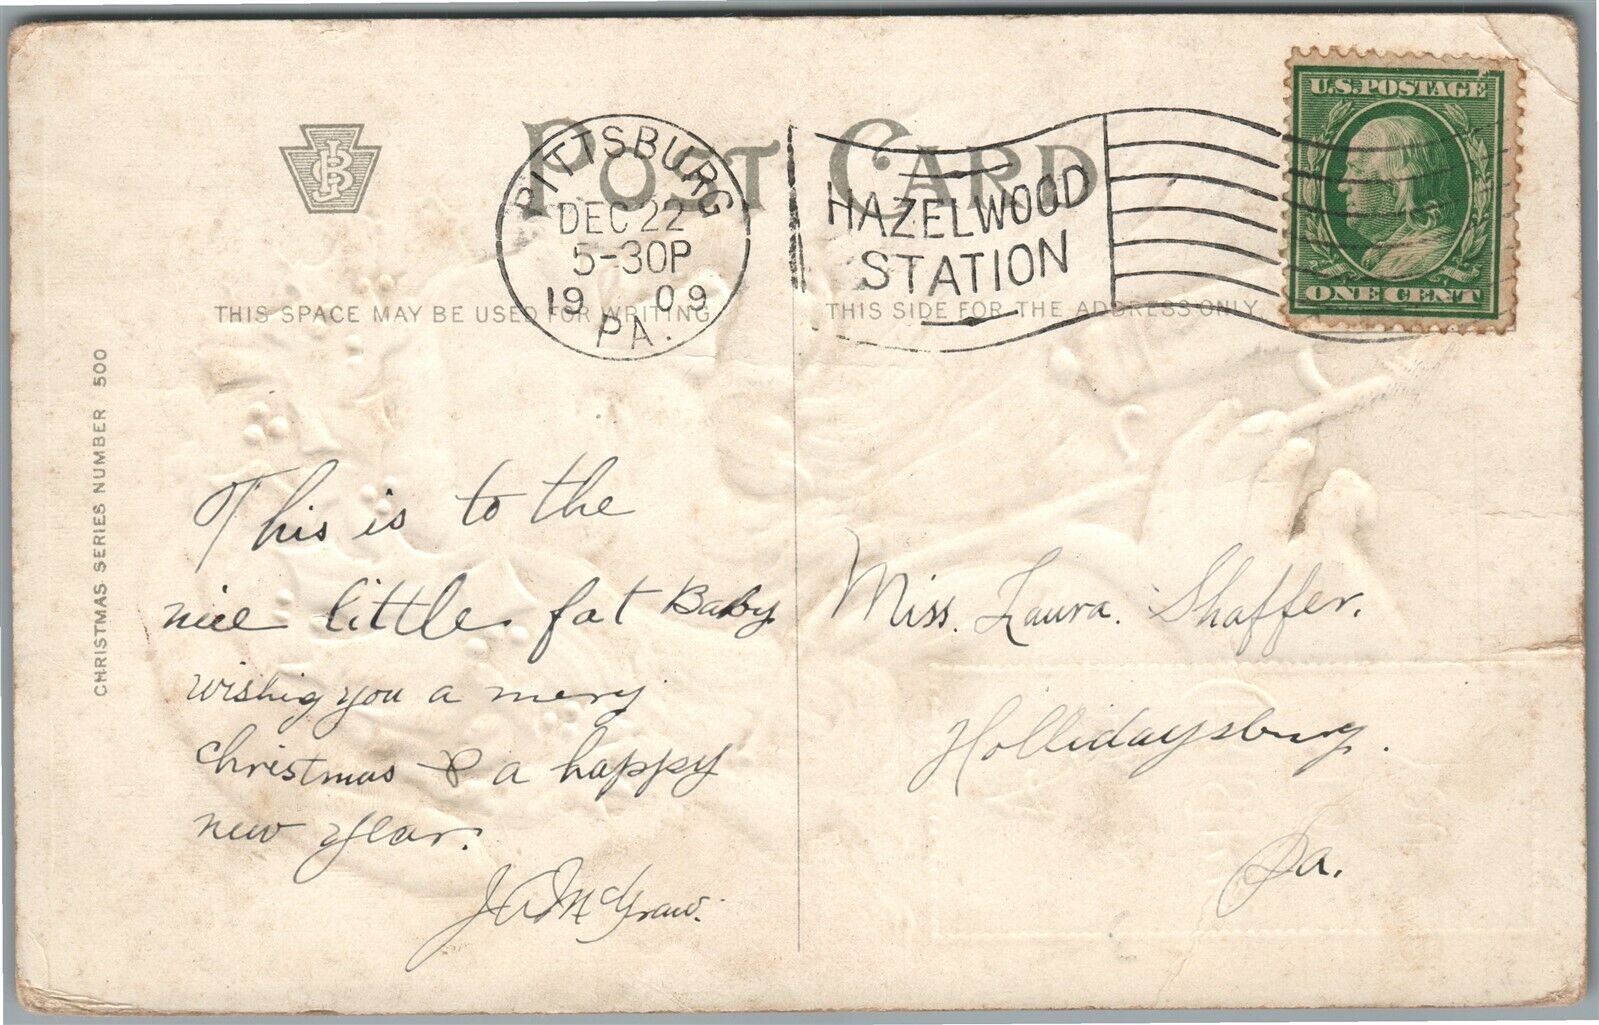 POST CARD
PITTSBURG
DEC 22
5-30P
1909
PA.
HAZELWOOD
STATION
U.S. POSTAGE
ONE CENT
THIS SPACE MAY BE USED FOR WRITING
THIS SIDE FOR THE ADDRESS ONLY.
CHRISTMAS SERIES NUMBER 500
This is to the
nice little fat Baby
wishig you a mery
christmas & a happy
new year.
J A McGraw.
Miss. Laura. Shaffer.
Hollidaysburg.
Pa.